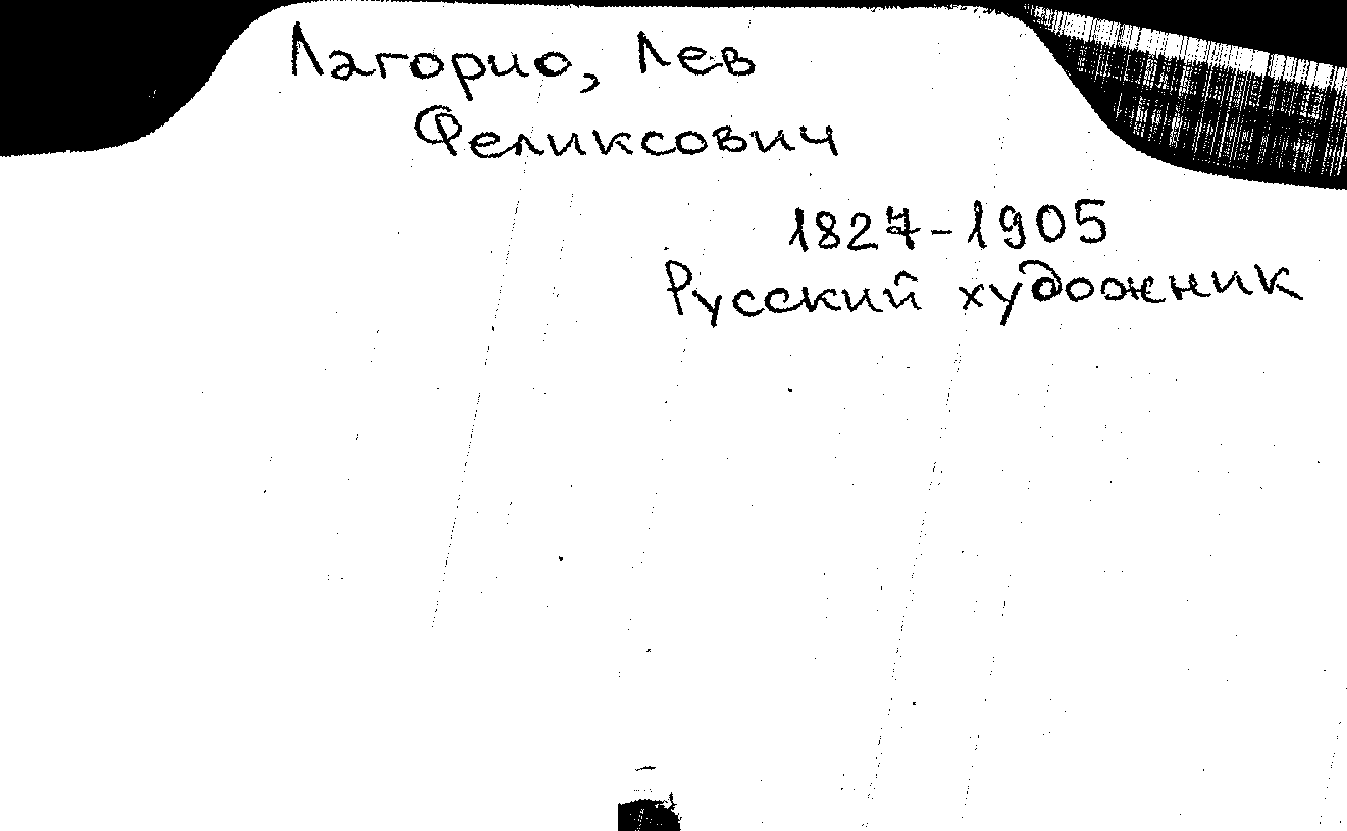 Лагорио, Лев
Феликсович
1827-1905
Русский художник